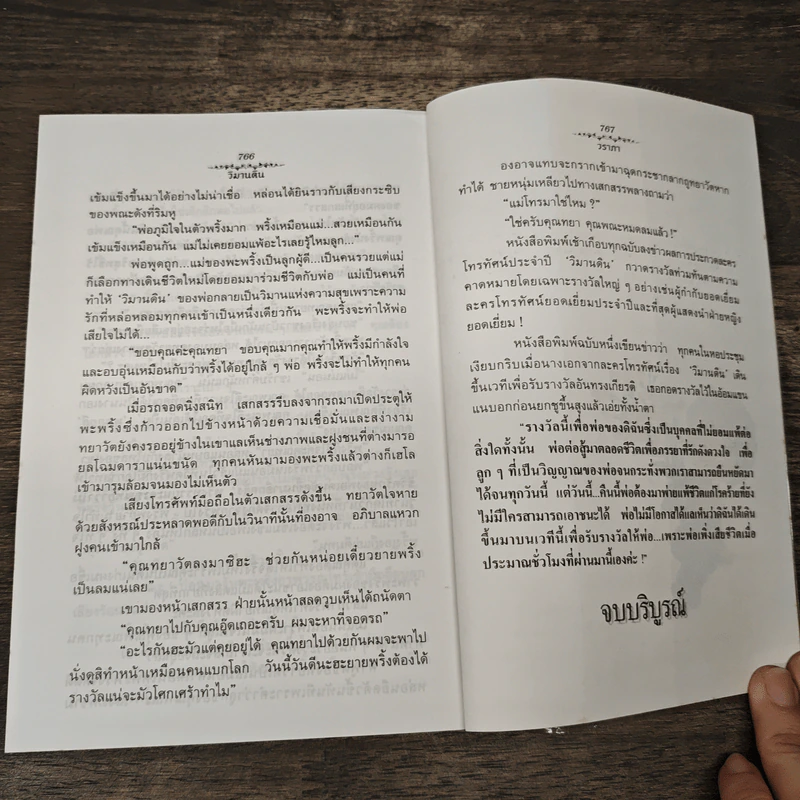 766
วิมานดิน
เข้มแข็งขึ้นมาได้อย่างไม่น่าเชื่อ หล่อนได้ยินราวกับเสียงกระซิบ
ของพณะดังที่ริมหู
“พ่อภูมิใจในตัวพริ้งมาก พริ้งเหมือนแม่...สวยเหมือนกัน
เข้มแข็งเหมือนกัน แม่ไม่เคยยอมแพ้อะไรเลยรู้ไหมลูก...”
พ่อพูดถูก...แม่ของพะพริ้งเป็นลูกผู้ดี...เป็นคนรวยแต่แม่
ก็เลือกทางเดินชีวิตใหม่โดยยอมมาร่วมชีวิตกับพ่อ แม่เป็นคนที่
ทำให้ ‘วิมานดิน’ ของพ่อกลายเป็นวิมานแห่งความสุขเพราะความ
รักที่หล่อหลอมทุกคนเข้าเป็นหนึ่งเดียวกัน พะพริ้งจะทำให้พ่อ
เสียใจไม่ได้...
“ขอบคุณค่ะคุณทยา ขอบคุณมากคุณทำให้พริ้งมีกำลังใจ
และอบอุ่นเหมือนกับว่าพริ้งได้อยู่ใกล้ ๆ พ่อ พริ้งจะไม่ทำให้ทุกคน
ผิดหวังเป็นอันขาด”
เมื่อรถจอดนิ่งสนิท เสกสรรรีบลงจากรถมาเปิดประตูให้
พะพริ้งซึ่งก้าวออกไปข้างหน้าด้วยความเชื่อมั่นและสง่างาม
ทยาวัตยังคงรออยู่ข้างในเขาแลเห็นช่างภาพและฝูงชนที่ต่างมารอ
ยลโฉมดาราแน่นขนัด ทุกคนหันมามองพะพริ้งแล้วต่างก็เฮโล
เข้ามารุมล้อมจนมองไม่เห็นตัว
เสียงโทรศัพท์มือถือในตัวเสกสรรดังขึ้น ทยาวัตใจหาย
ด้วยสังหรณ์ประหลาดพอดีกับในวินาทีนั้นที่องอาจ อภิบาลแหวก
ฝูงคนเข้ามาใกล้
“คุณทยาวัตลงมาซิฮะ ช่วยกันหน่อยเดี๋ยวยายพริ้ง
เป็นลมแน่เลย”
เขามองหน้าเสกสรร ฝ่ายนั้นหน้าสลดวูบเห็นได้ถนัดตา
“คุณทยาไปกับคุณอู๊ดเถอะครับ ผมจะหาที่จอดรถ”
“อะไรกันฮะมัวแต่คุยอยู่ได้ คุณทยาไปด้วยกันผมจะพาไป
นั่งดูสิทำหน้าเหมือนคนแบกโลก วันนี้วันดีนะฮะยายพริ้งต้องได้
รางวัลแน่จะมัวโศกเศร้าทำไม”
767
วราภา
องอาจแทบจะกรากเข้ามาฉุดกระชากลากถูทยาวัตหาก
ทำได้ ชายหนุ่มเหลียวไปทางเสกสรรพลางถามว่า
“แม่โทรมาใช่ไหม ?”
“ใช่ครับคุณทยา คุณพณะหมดลมแล้ว !”
หนังสือพิมพ์เช้าเกือบทุกฉบับลงข่าวผลการประกวดละคร
โทรทัศน์ประจำปี ‘วิมานดิน’ กวาดรางวัลท่วมท้นตามความ
คาดหมายโดยเฉพาะรางวัลใหญ่ ๆ อย่างเช่นผู้กำกับยอดเยี่ยม
ละครโทรทัศน์ยอดเยี่ยมประจำปีและที่สุดผู้แสดงนำฝ่ายหญิง
ยอดเยี่ยม !
หนังสือพิมพ์ฉบับหนึ่งเขียนข่าวว่า ทุกคนในหอประชุม
เงียบกริบเมื่อนางเอกจากละครโทรทัศน์เรื่อง ‘วิมานดิน’ เดิน
ขึ้นเวทีเพื่อรับรางวัลอันทรงเกียรติ เธอกอดรางวัลไว้ในอ้อมแขน
แนบอกก่อนยกชูขึ้นสูงแล้วเอ่ยทั้งน้ำตา
“รางวัลนี้เพื่อพ่อของดิฉันซึ่งเป็นบุคคลที่ไม่ยอมแพ้ต่อ
สิ่งใดทั้งนั้น พ่อต่อสู้มาตลอดชีวิตเพื่อภรรยาที่รักดังดวงใจ เพื่อ
ลูก ๆ ที่เป็นวิญญาณของพ่อจนกระทั่งพวกเราสามารถยืนหยัดมา
ได้จนทุกวันนี้ แต่วันนี้...คืนนี้พ่อต้องมาพ่ายแพ้ชีวิตแก่โรคร้ายที่ยัง
ไม่มีใครสามารถเอาชนะได้ พ่อไม่มีโอกาสได้แลเห็นว่าดิฉันได้เดิน
ขึ้นมาบนเวทีนี้เพื่อรับรางวัลให้พ่อ...เพราะพ่อเพิ่งเสียชีวิตเมื่อ
ประมาณชั่วโมงที่ผ่านมานี้เองค่ะ !”
จบบริบูรณ์